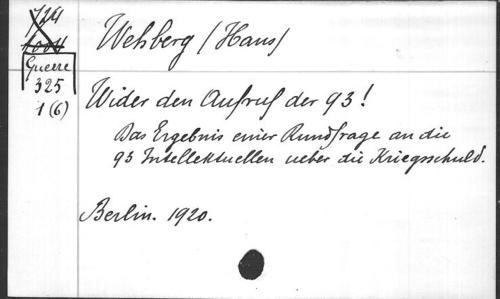 Wehberg (Hans)
Guerre
325
1 (6)
Wider den Aufruf der 93!
Das Ergebnis einer Rundfrage an die
93 Intellektuellen ueber die Kriegsschuld.
Berlin. 1920.